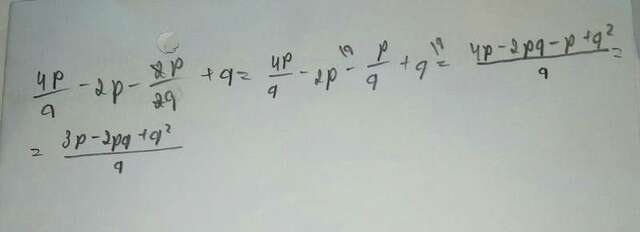 4p/q - 2p - 2p/2q + q = 4p/q - 2p^{\q} - p/q + q^{\q} = (4p - 2pq - p + q²)/q =
= (3p - 2pq + q²)/q